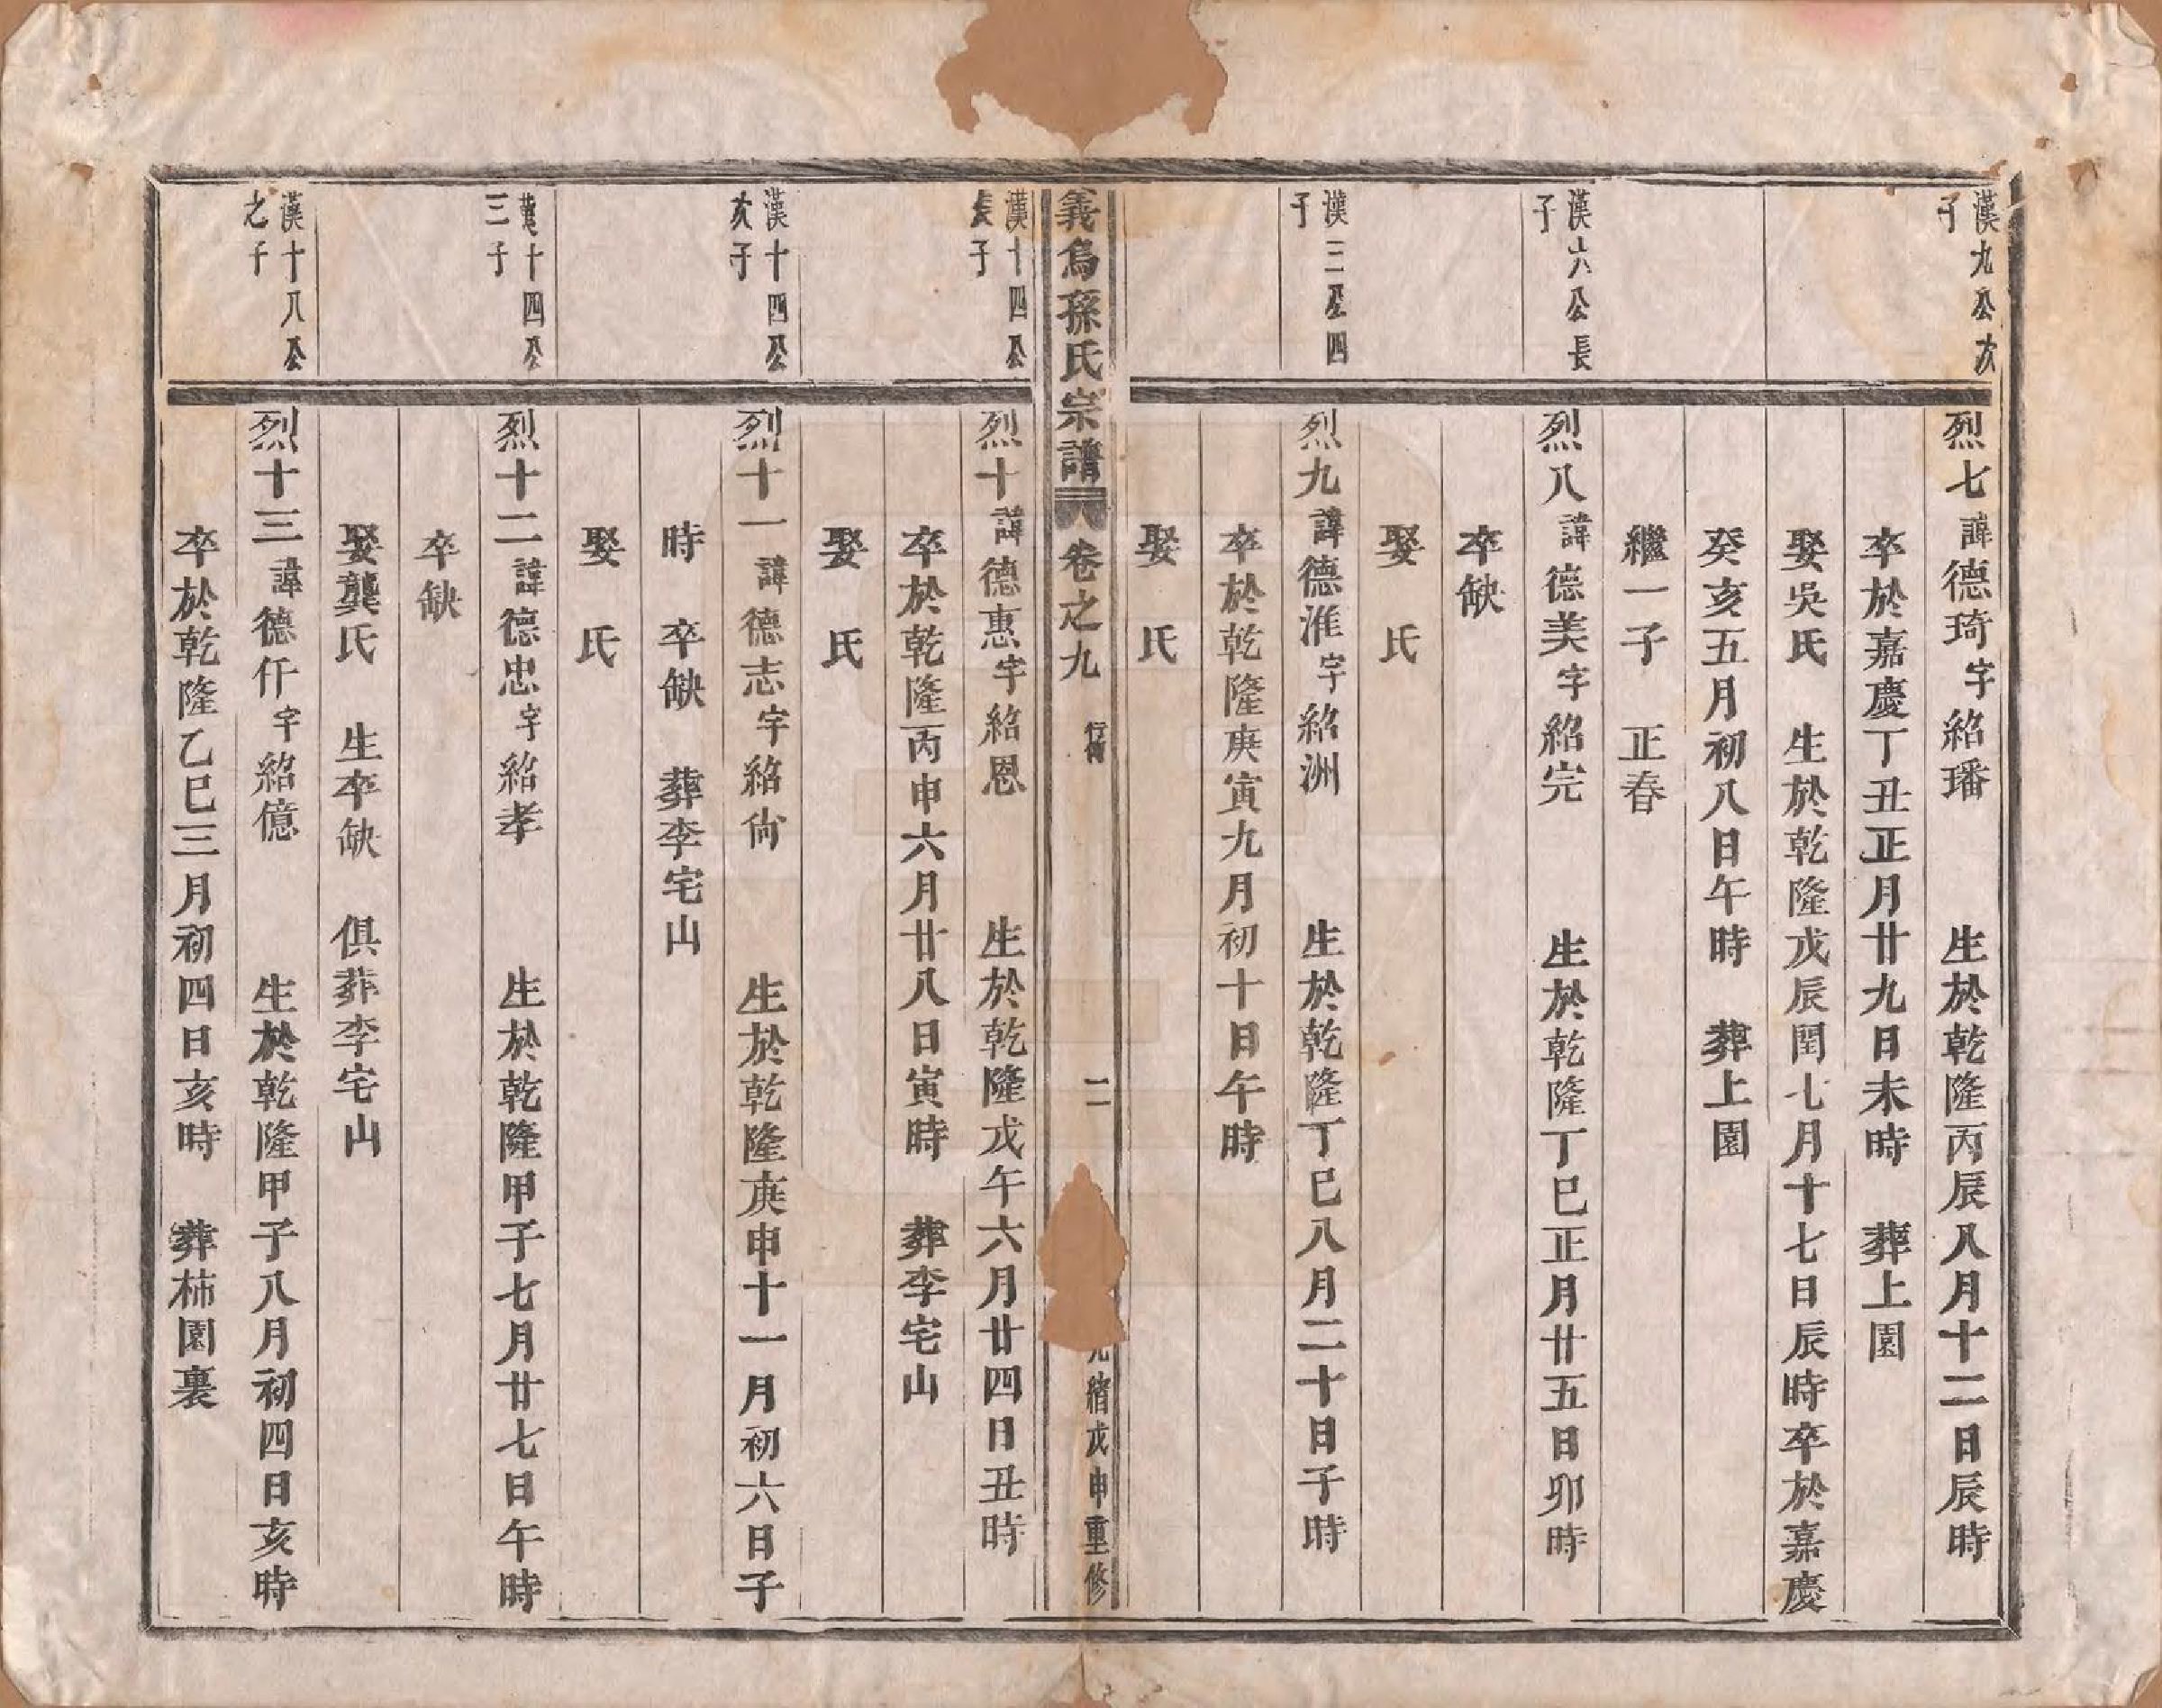 漢九公次
子
烈七諱德琦字紹璠　生於乾隆丙辰八月十二日辰時
卒於嘉慶丁丑正月廿九日未時　葬上園
娶吳氏　生於乾隆戊辰閏七月十七日辰時卒於嘉慶
癸亥五月初八日午時　葬上園
繼一子　正春
漢六公長
子
烈八諱德美字紹完　生於乾隆丁巳正月廿五日卯時
卒缺
娶　氏
漢三公四
子
烈九諱德淮字紹洲　生於乾隆丁巳八月二十日子時
卒於乾隆庚寅九月初十日午時
娶　氏
義烏孫氏宗譜　卷之九　行傳　二　光緒戊申重修
漢十四公
長子
烈十諱德惠字紹恩　生於乾隆戊午六月廿四日丑時
卒於乾隆丙申六月廿八日寅時　葬李宅山
娶　氏
漢十四公
次子
烈十一諱德志字紹尙　生於乾隆庚申十一月初六日子
時　卒缺　葬李宅山
娶　氏
漢十四公
三子
烈十二諱德忠字紹孝　生於乾隆甲子七月廿七日午時
卒缺
娶龔氏　生卒缺　俱葬李宅山
漢十八公
之子
烈十三諱德仟字紹億　生於乾隆甲子八月初四日亥時
卒於乾隆乙巳三月初四日亥時　葬柿園裏